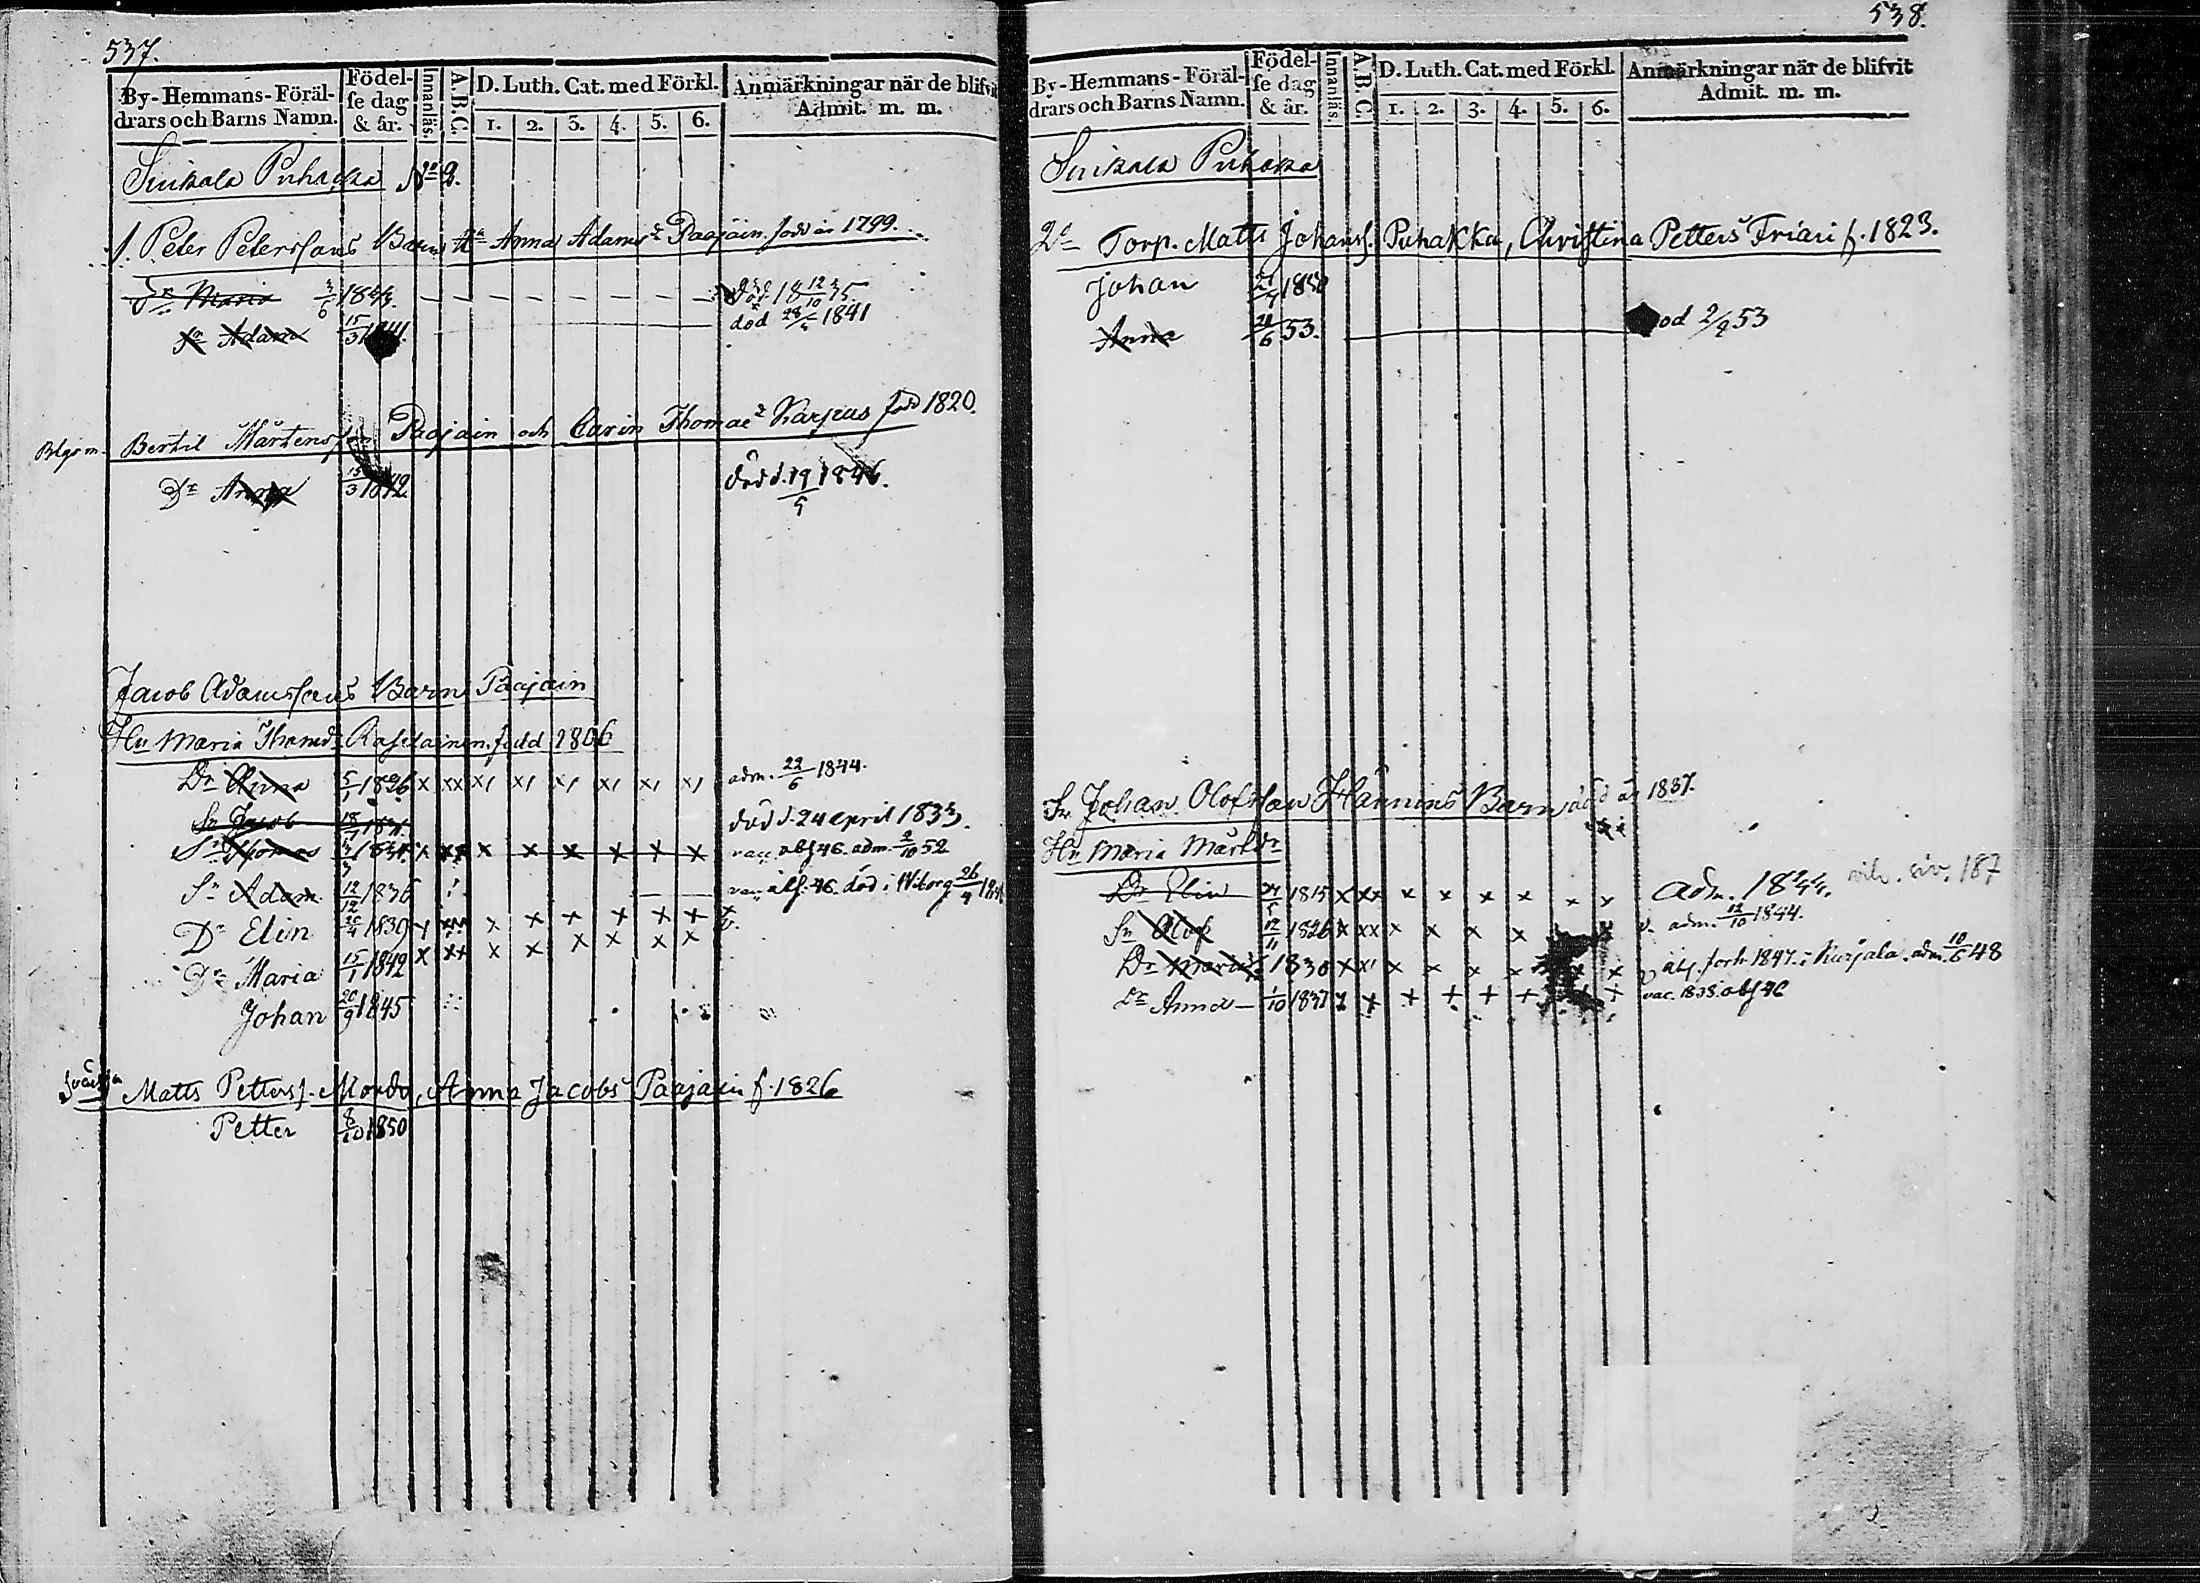 537.
By- Hemmans- Föräl-
drars och Barns Namn.
Födel-
se dag
& år.
Innanläs.
A.B.C.
D. Luth. Cat. med Förkl.
1. 2. 3. 4. 5. 6.
Anmärkningar när de blifvit
Admit. m. m.
Suikala Puhacka No 2.
1. Peter Peterssons Barn Anna Adams Paajain född år 1799.
Dr Maria 3/6
död 18 12/10 35
Sn Adam 15/3 1841. död 28/4 1841
Bertil Mårtensson Paajain och Carin Thomae Karpus född 1820.
Dr Anna 15/3 1842 död d. 19/5 1846.
Jacob Adamssons Barn Paajain
Hu Maria Thomdr född 1806
Dr Anna 5/1 1826 x xx x x x x x x adm. 22/6 1844.
Sn Jacob 18/7 död d. 24 april 1833.
Sn Thomas x xx x x x x x x vac. abs 46. adm. 2/10 52
Sn Adam 12/12 1836 vac. abs. 46. död i Wiborg 26/4
Dr Elin 20/4 1839 x xx x x x x x x
Dr Maria 15/1 1842 x xx x x x x x x
Johan 20/9 1845
Matts Petterss. Mordo, Anna Jacobs Paajain f. 1826
Petter 8/10 1850
538.
By- Hemmans- Föräl-
drars och Barns Namn.
Födel-
se dag
& år.
Innanläs.
A.B.C.
D. Luth. Cat. med Förkl.
1. 2. 3. 4. 5. 6.
Anmärkningar när de blifvit
Admit. m. m.
Suikala Puhakka
2 Torp. Matts Johanss. Puhakka, Christina Petters Friari f. 1823.
Johan 21/7 1850
Anna 53. od 2/9 53
Sn Johan Olofsson Hännins Barn död år 1837.
Hu Maria Mårtdr
Dr Elin 1815 x xx x x x x x x adm. 1844.
Sn Olof 12/11 1826 x xx x x x x adm. 12/10 1844.
Dr Maria 1830 x x x x x x x abs. forh. 1847. i Kurjala. adm. 10/6 48
Dr Anna 1/10 1837 x x x x x x x vac. 1838. abs 46